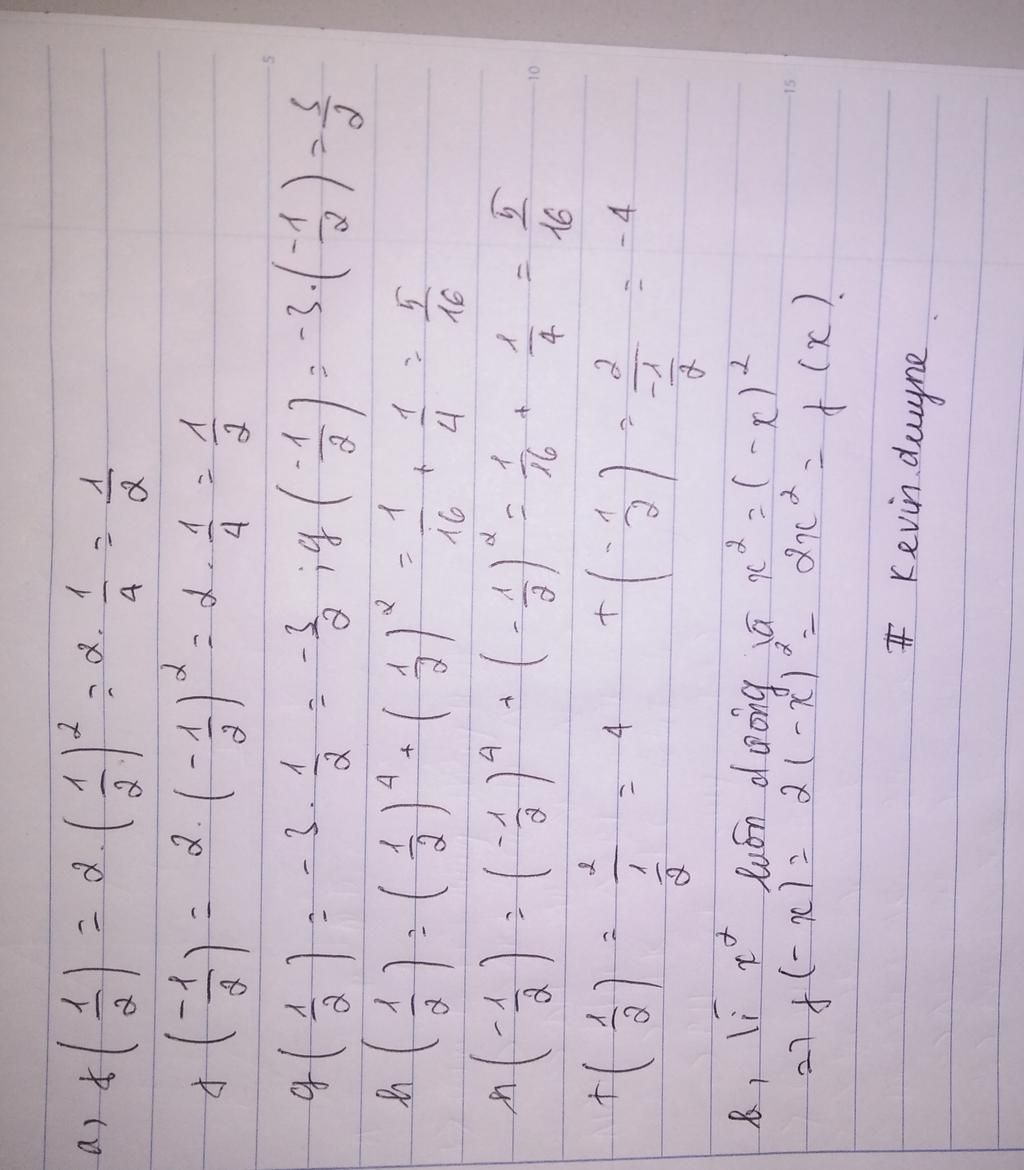 a) f(1/2) = 2.(1/2)^2 = 2.1/4 = 1/2
f(-1/2) = 2.(-1/2)^2 = 2.1/4 = 1/2
g(1/2) = -3.1/2 = -3/2 ; g(-1/2) = -3.(-1/2) = 3/2
h(1/2) = (1/2)^4 + (1/2)^2 = 1/16 + 1/4 = 5/16
h(-1/2) = (-1/2)^4 + (-1/2)^2 = 1/16 + 1/4 = 5/16
t(1/2) = 2/(1/2) = 4 t(-1/2) = 2/(-1/2) = -4
b, Vì x^2 luôn dương và x^2 = (-x)^2
=> f(-x) = 2(-x)^2 = 2x^2 = f(x).
# kevin.denyne.
5
10
15